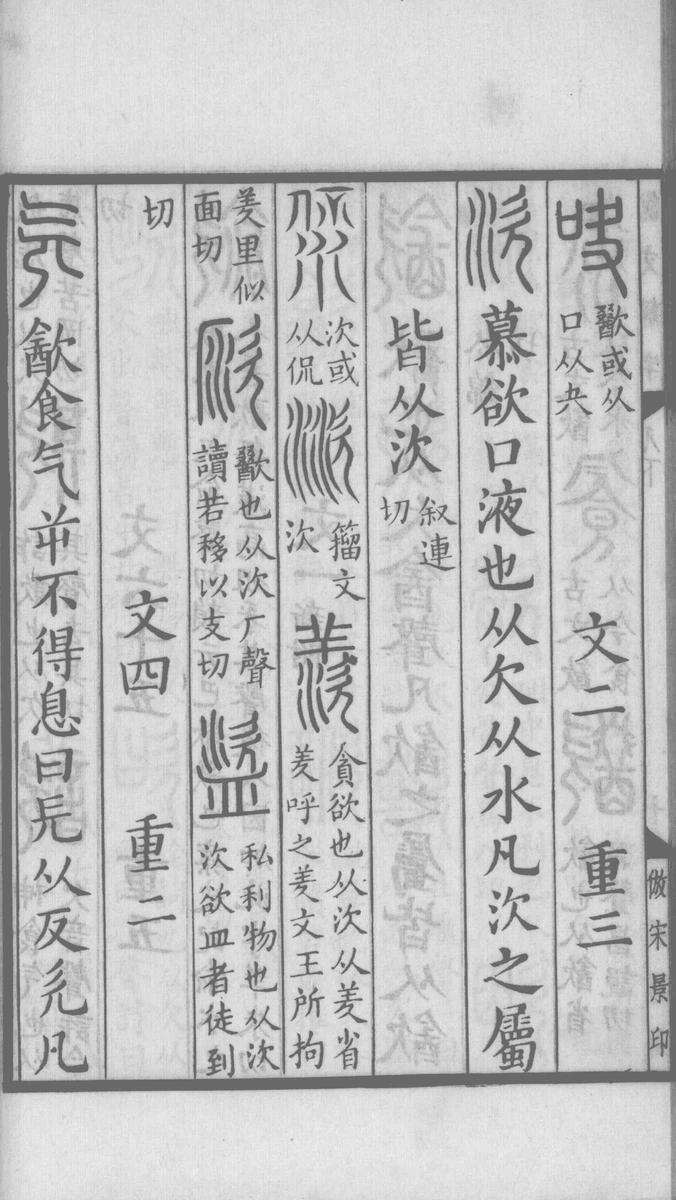 吷歠或从口从夬 文二 重三
㳄慕欲口液也从欠从水凡㳄之屬
皆从㳄叙連切
㳄或从侃 籒文㳄 羨貪欲也从㳄从羑省羑呼之羑文王所拘
羑里似面切 㳄歠也从㳄厂聲讀若移以支切 盜私利物也从㳄㳄欲皿者徒到
切 文四 重二
旡㱃食气屰不得息曰旡从反欠凡
倣宋景印